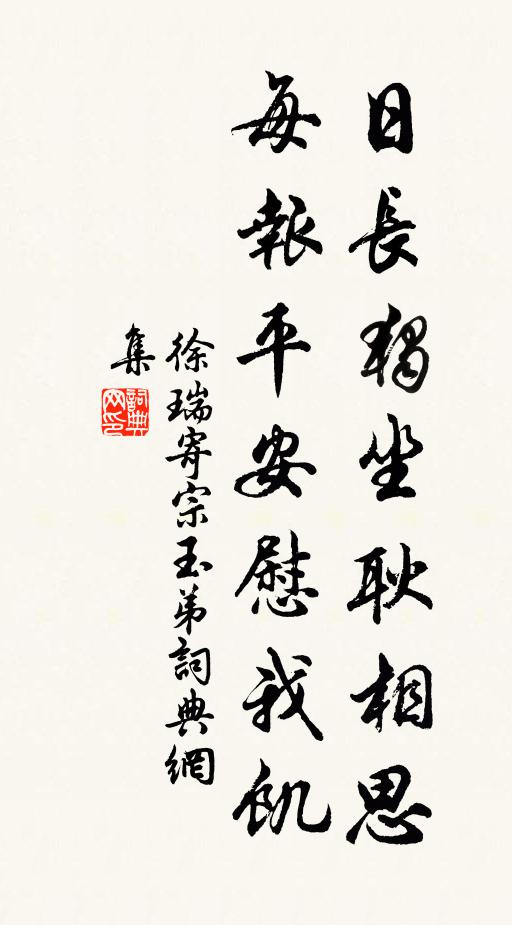 日長獨坐耿相思
每報平安慰我飢
徐瑞寄宗玉弟詞典網
集
詞典网印